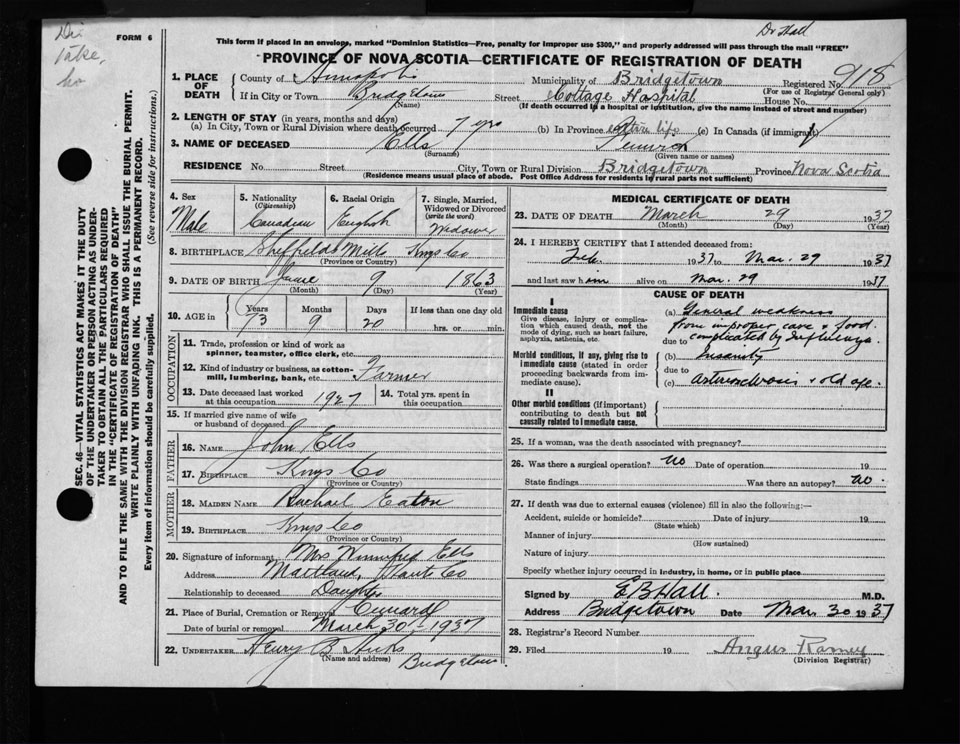 Dr Hall
FORM 6
This form if placed in an envelope, marked "Dominion Statistics—Free, penalty for improper use $300," and properly addressed will pass through the mail "FREE"
PROVINCE OF NOVA SCOTIA—CERTIFICATE OF REGISTRATION OF DEATH
SEC. 46—VITAL STATISTICS ACT MAKES IT THE DUTY
OF THE UNDERTAKER OR PERSON ACTING AS UNDER-
TAKER TO OBTAIN ALL THE PARTICULARS REQUIRED
IN THE "CERTIFICATE OF REGISTRATION OF DEATH"
AND TO FILE THE SAME WITH THE DIVISION REGISTRAR WHO SHALL ISSUE THE BURIAL PERMIT.
WRITE PLAINLY WITH UNFADING INK. THIS IS A PERMANENT RECORD.
Every item of information should be carefully supplied. (See reverse side for instructions.)
1. PLACE OF DEATH
County of Annapolis Municipality of Bridgetown Registered No. 918
(For use of Registrar General only)
If in City or Town Bridgetown Street Cottage Hospital House No.
(Name) (If death occurred in a hospital or institution, give the name instead of street and number)
2. LENGTH OF STAY (in years, months and days)
(a) In City, Town or Rural Division where death occurred 7 yrs (b) In Province entire life (c) In Canada (if immigrant)
3. NAME OF DECEASED Ells
(Surname) (Given name or names)
RESIDENCE No. Street City, Town or Rural Division Bridgetown Province Nova Scotia
(Residence means usual place of abode. Post Office Address for residents by rural parts not sufficient)
4. Sex Male
5. Nationality (Citizenship) Canadian
6. Racial Origin English
7. Single, Married, Widowed or Divorced (write the word) Widower
8. BIRTHPLACE Sheffields Mills Kings Co
(Province or Country)
9. DATE OF BIRTH June 9 1863
(Month) (Day) (Year)
10. AGE in Years 73 Months 9 Days 20 If less than one day old
hrs. or min.
OCCUPATION
11. Trade, profession or kind of work as spinner, teamster, office clerk, etc.
12. Kind of industry or business, as cotton-mill, lumbering, bank, etc. Farmer
13. Date deceased last worked at this occupation 1927
14. Total yrs. spent in this occupation
15. If married give name of wife or husband of deceased
FATHER
16. NAME John Ells
17. BIRTHPLACE Kings Co
(Province or Country)
MOTHER
18. MAIDEN NAME Rachael Eaton
19. BIRTHPLACE Kings Co
(Province or Country)
20. Signature of informant Mrs Winnifred Ells
Address Maitland, Hants Co
Relationship to deceased Daughter
21. Place of Burial, Cremation or Removal
Date of burial or removal March 30th 1937
22. UNDERTAKER Henry B Hicks
(Name and address) Bridgetown
MEDICAL CERTIFICATE OF DEATH
23. DATE OF DEATH March 29 1937
(Month) (Day) (Year)
24. I HEREBY CERTIFY that I attended deceased from:
Feb. 1937 to Mar. 29 1937
and last saw him alive on Mar. 29 1937
CAUSE OF DEATH
I
Immediate cause
Give disease, injury or complication which caused death, not the mode of dying, such as heart failure, asphyxia, asthenia, etc.
(a) General weakness
from improper care & food
due to complicated by Influenza
Morbid conditions, if any, giving rise to immediate cause (stated in order proceeding backwards from immediate cause).
(b) Insanity
due to
(c) Arteriosclerosis & old age.
II
Other morbid conditions (if important) contributing to death but not causally related to immediate cause.
25. If a woman, was the death associated with pregnancy?
26. Was there a surgical operation? no Date of operation 19
State findings Was there an autopsy? no.
27. If death was due to external causes (violence) fill in also the following:—
Accident, suicide or homicide? Date of injury 19
(State which)
Manner of injury
(How sustained)
Nature of injury
Specify whether injury occurred in industry, in home, or in public place
Signed by E B Hall. M.D.
Address Bridgetown Date Mar 30 1937
28. Registrar's Record Number
29. Filed 19 Angus Ramey
(Division Registrar)